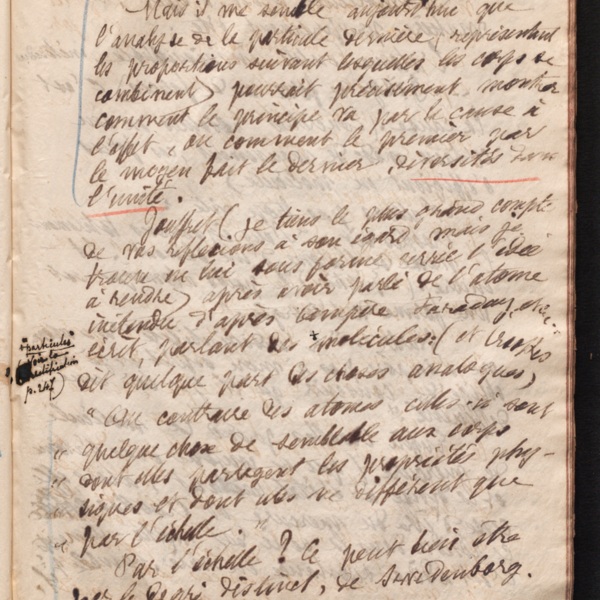 Mais il me semble aujourd'hui que
l'analyse de la particule dernière, représentent
les proportions suivant lesquelles les corps se
combinent) pourrait précisément montrer
comment le principe va par le cause à
l'effet, ou comment le premier par
le moyen fait le dernier, diversités dans
l'unité.
Jouffret (je tiens le plus grand compte
de vos réflexions à son égard mais je
trouve en lui sous forme serrée l'idée
à rendre) après avoir parlé de l'atome
inétendu d'après Ampère Faraday, etc.
écrit, parlant des molécules: (et Crookes
dit quelque part des choses analogues,)
"particules"
voir la
rectification
p. 247)
" Au contraire des atomes celles-ci sont
" quelque chose de semblable aux corps
" dont elles partagent les propriétés phy-
" siques et dont elles ne diffèrent que
" par l'échelle. "
Par l'échelle? Ce peut bien être
par le degré distinct, de Swedenborg.